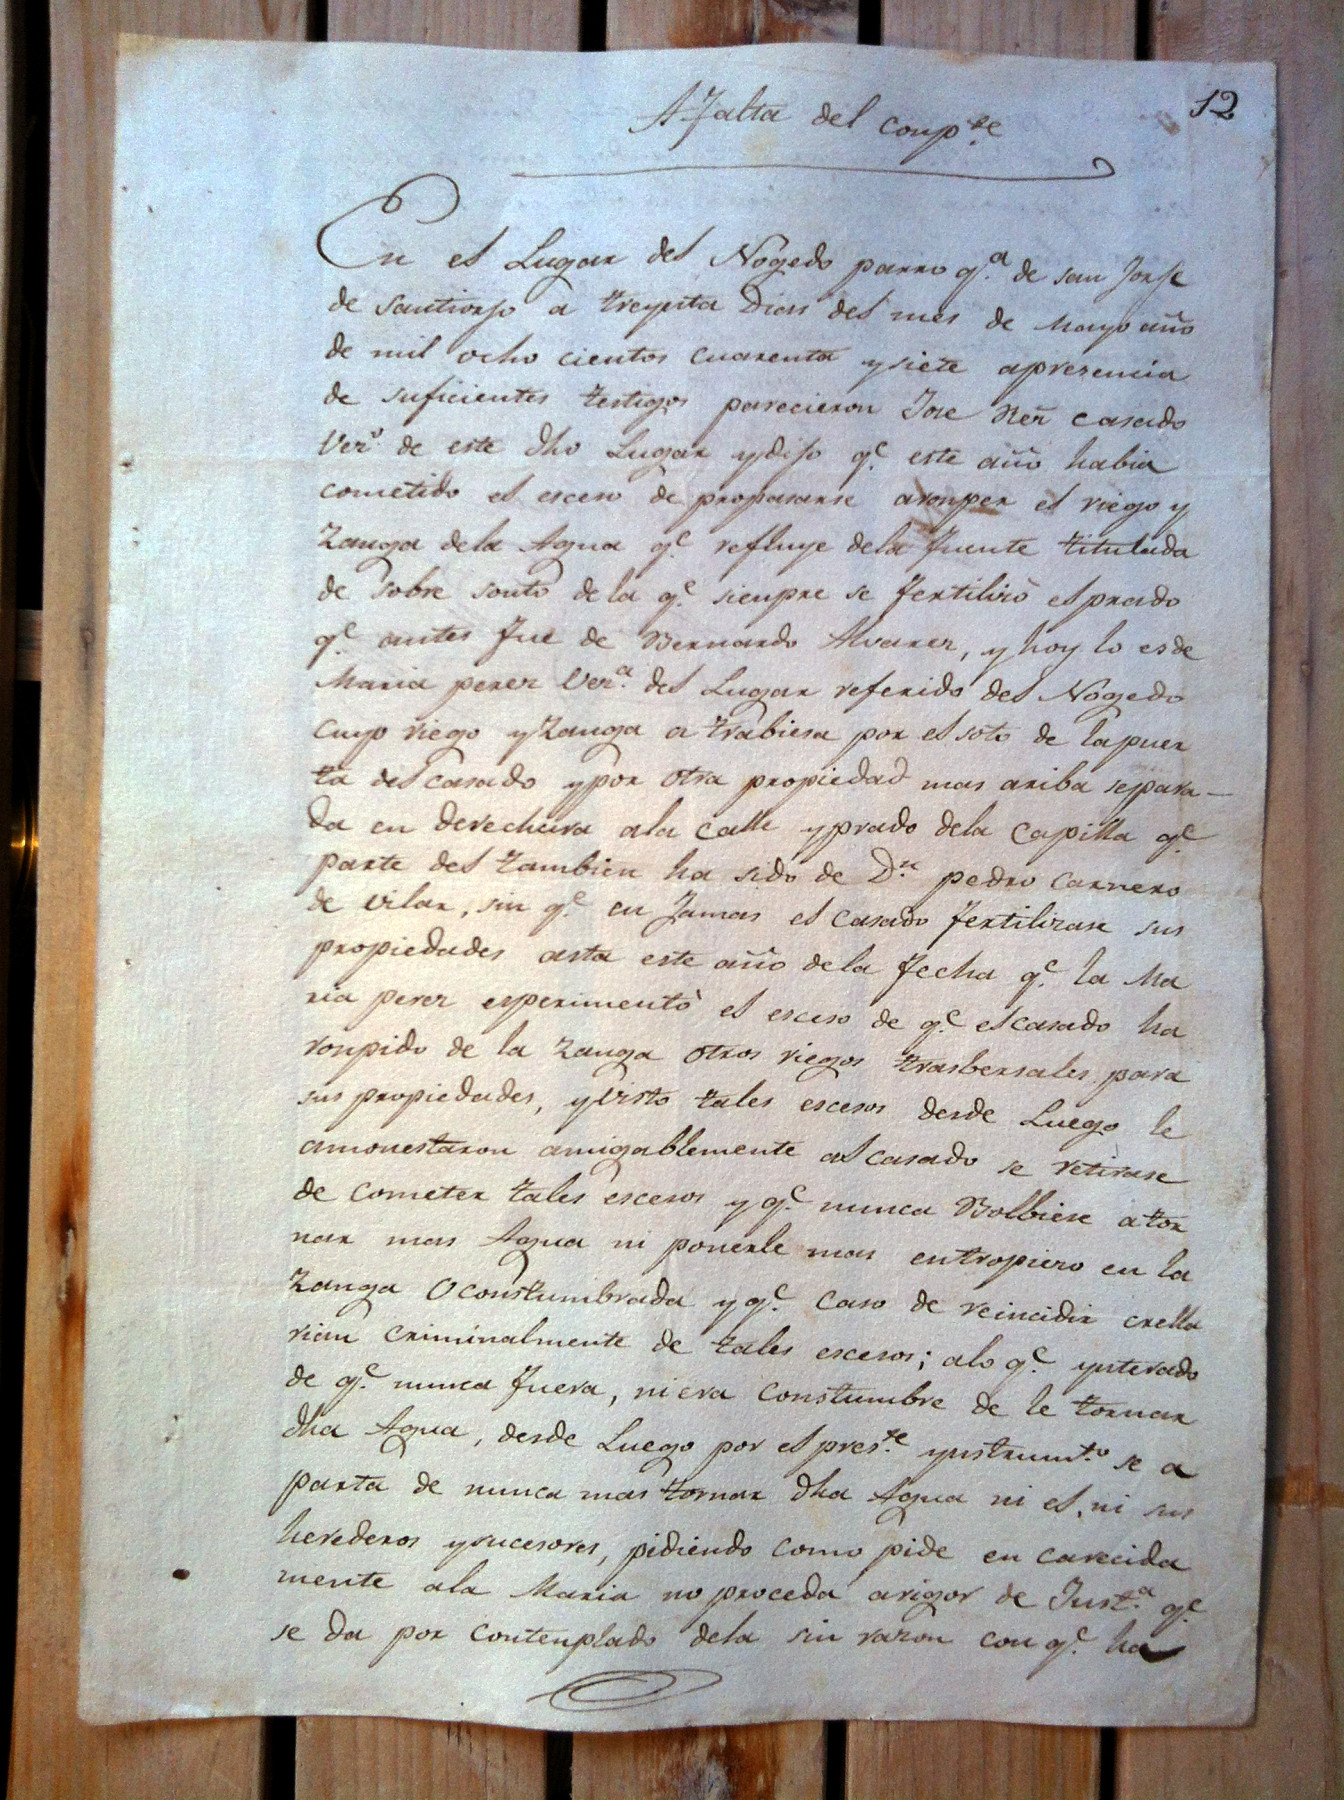 A falta del conp.te
12
En el Lugar del Nogedo parro q.a de san Jorje
de santiorjo a treynta Dias del mes de Mayo año
de mil ocho cientos cuarenta y siete apresencia
de suficientes testigos parecieron Jose Rez casado
Vez.o de este dho Lugar y dijo q.e este año habia
cometido el esceso de propasarse aronper el riego y
Zanga dela Agua q.e refluye dela fuente titulada
de sobre souto de la q.e sienpre se fertilizò el prado
q.e antes fue de Bernardo Alvarez, y hoy lo es de
Maria perez Vez.a del Lugar referido del Nogedo
cuyo riego y Zanga a trabiesa por el soto de la puer
ta del casado y por otra propiedad mas ariba separa-
da en derechura ala calle y prado dela capilla q.e
parte del tambien ha sido de D.n pedro carnero
de vilar, sin q.e en Jamas el casado fertilizase sus
propiedades asta este año dela fecha q.e la Ma
ria perez esperimentò el esceso de q.e el casado ha
ronpido de la Zanga otros riegos trasbersales para
sus propiedades, y visto tales escesos desde Luego le
amonestaron amigablemente al casado se retirase
de cometer tales escesos y q.e nunca Bolbiese a tor
nar mas Agua ni ponerle mas entropiezo en la
Zanga Oconstumbrada y q.e caso de reincidir crella
rian criminalmente de tales escesos; alo q.e ynterado
de q.e nunca fuera, ni era constumbre de le tornar
dha Agua, desde Luego por el pres.te ynstrum.to se a
parta de nunca mas tornar dha Agua ni el, ni sus
herederos y sucesores, pidiendo como pide en carecida
mente ala Maria no proceda arigor de Just.a q.e
se da por contenplado dela sin razon con q.e ha